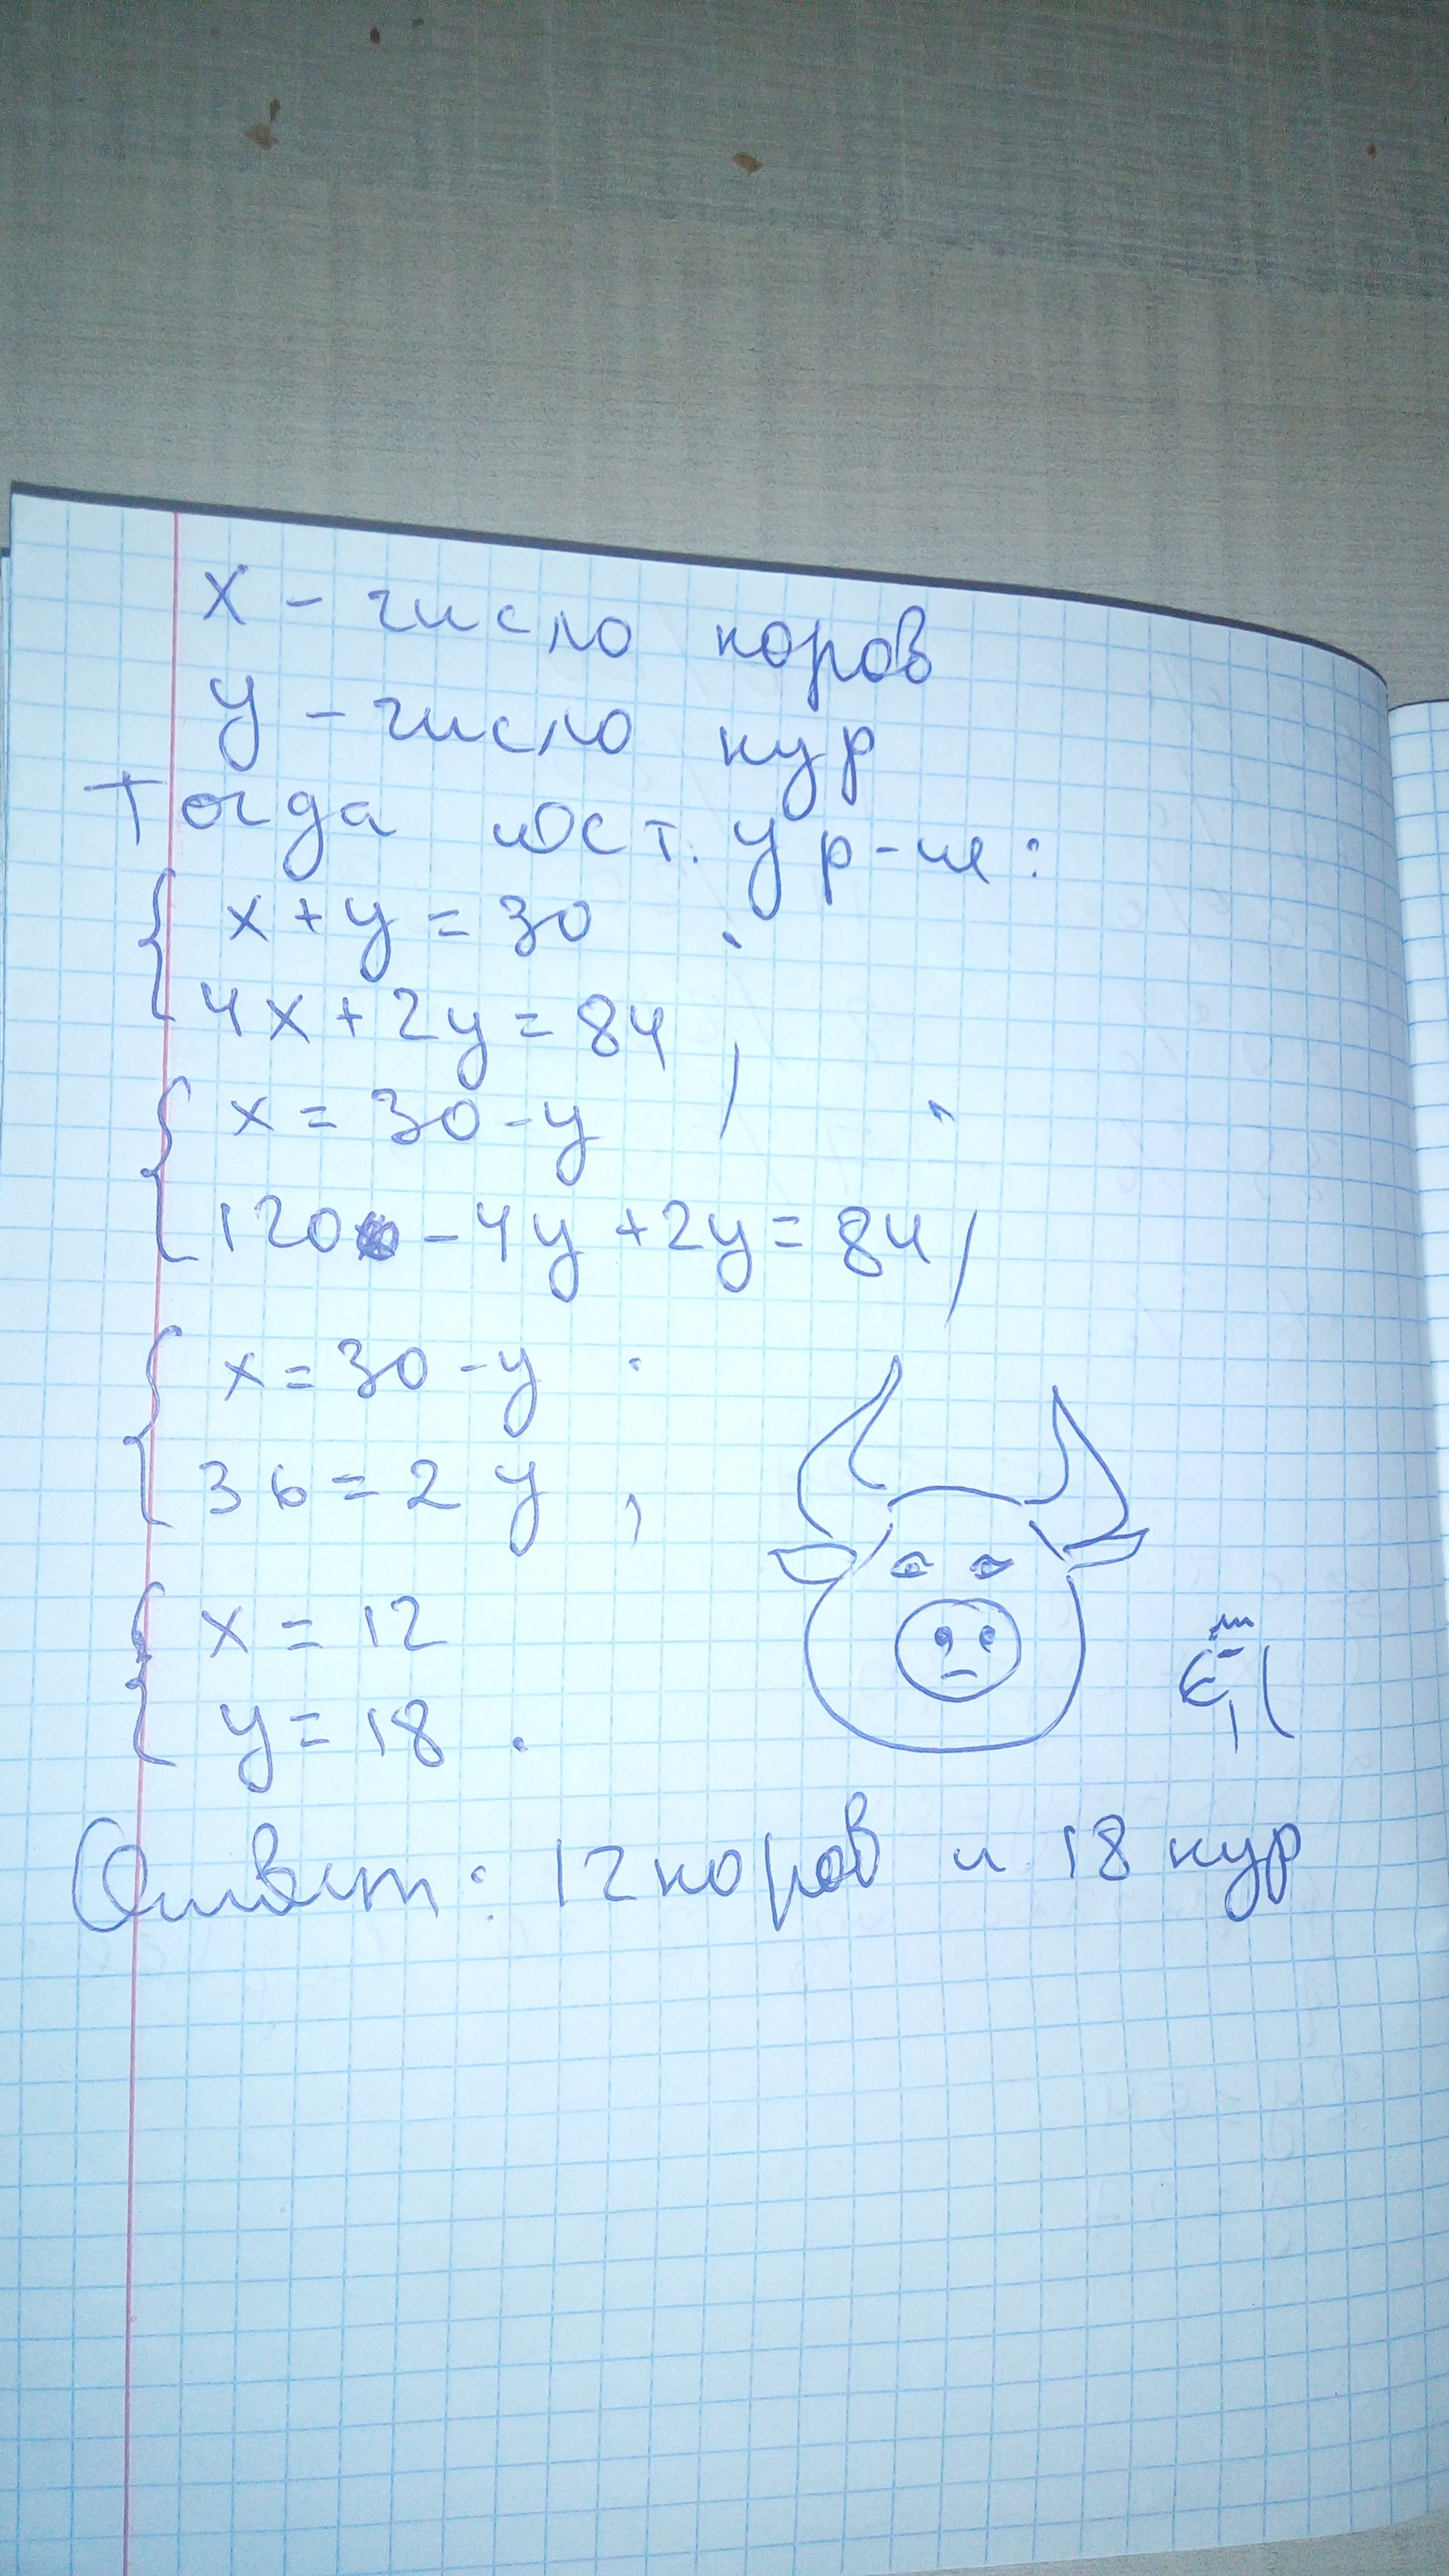 x - число коров
y - число кур
Тогда сост. ур-ие:
x + y = 30
4x + 2y = 84,
x = 30 - y
120 - 4y + 2y = 84,
x = 30 - y
36 = 2y,
x = 12
y = 18.
Ответ: 12 коров и 18 кур